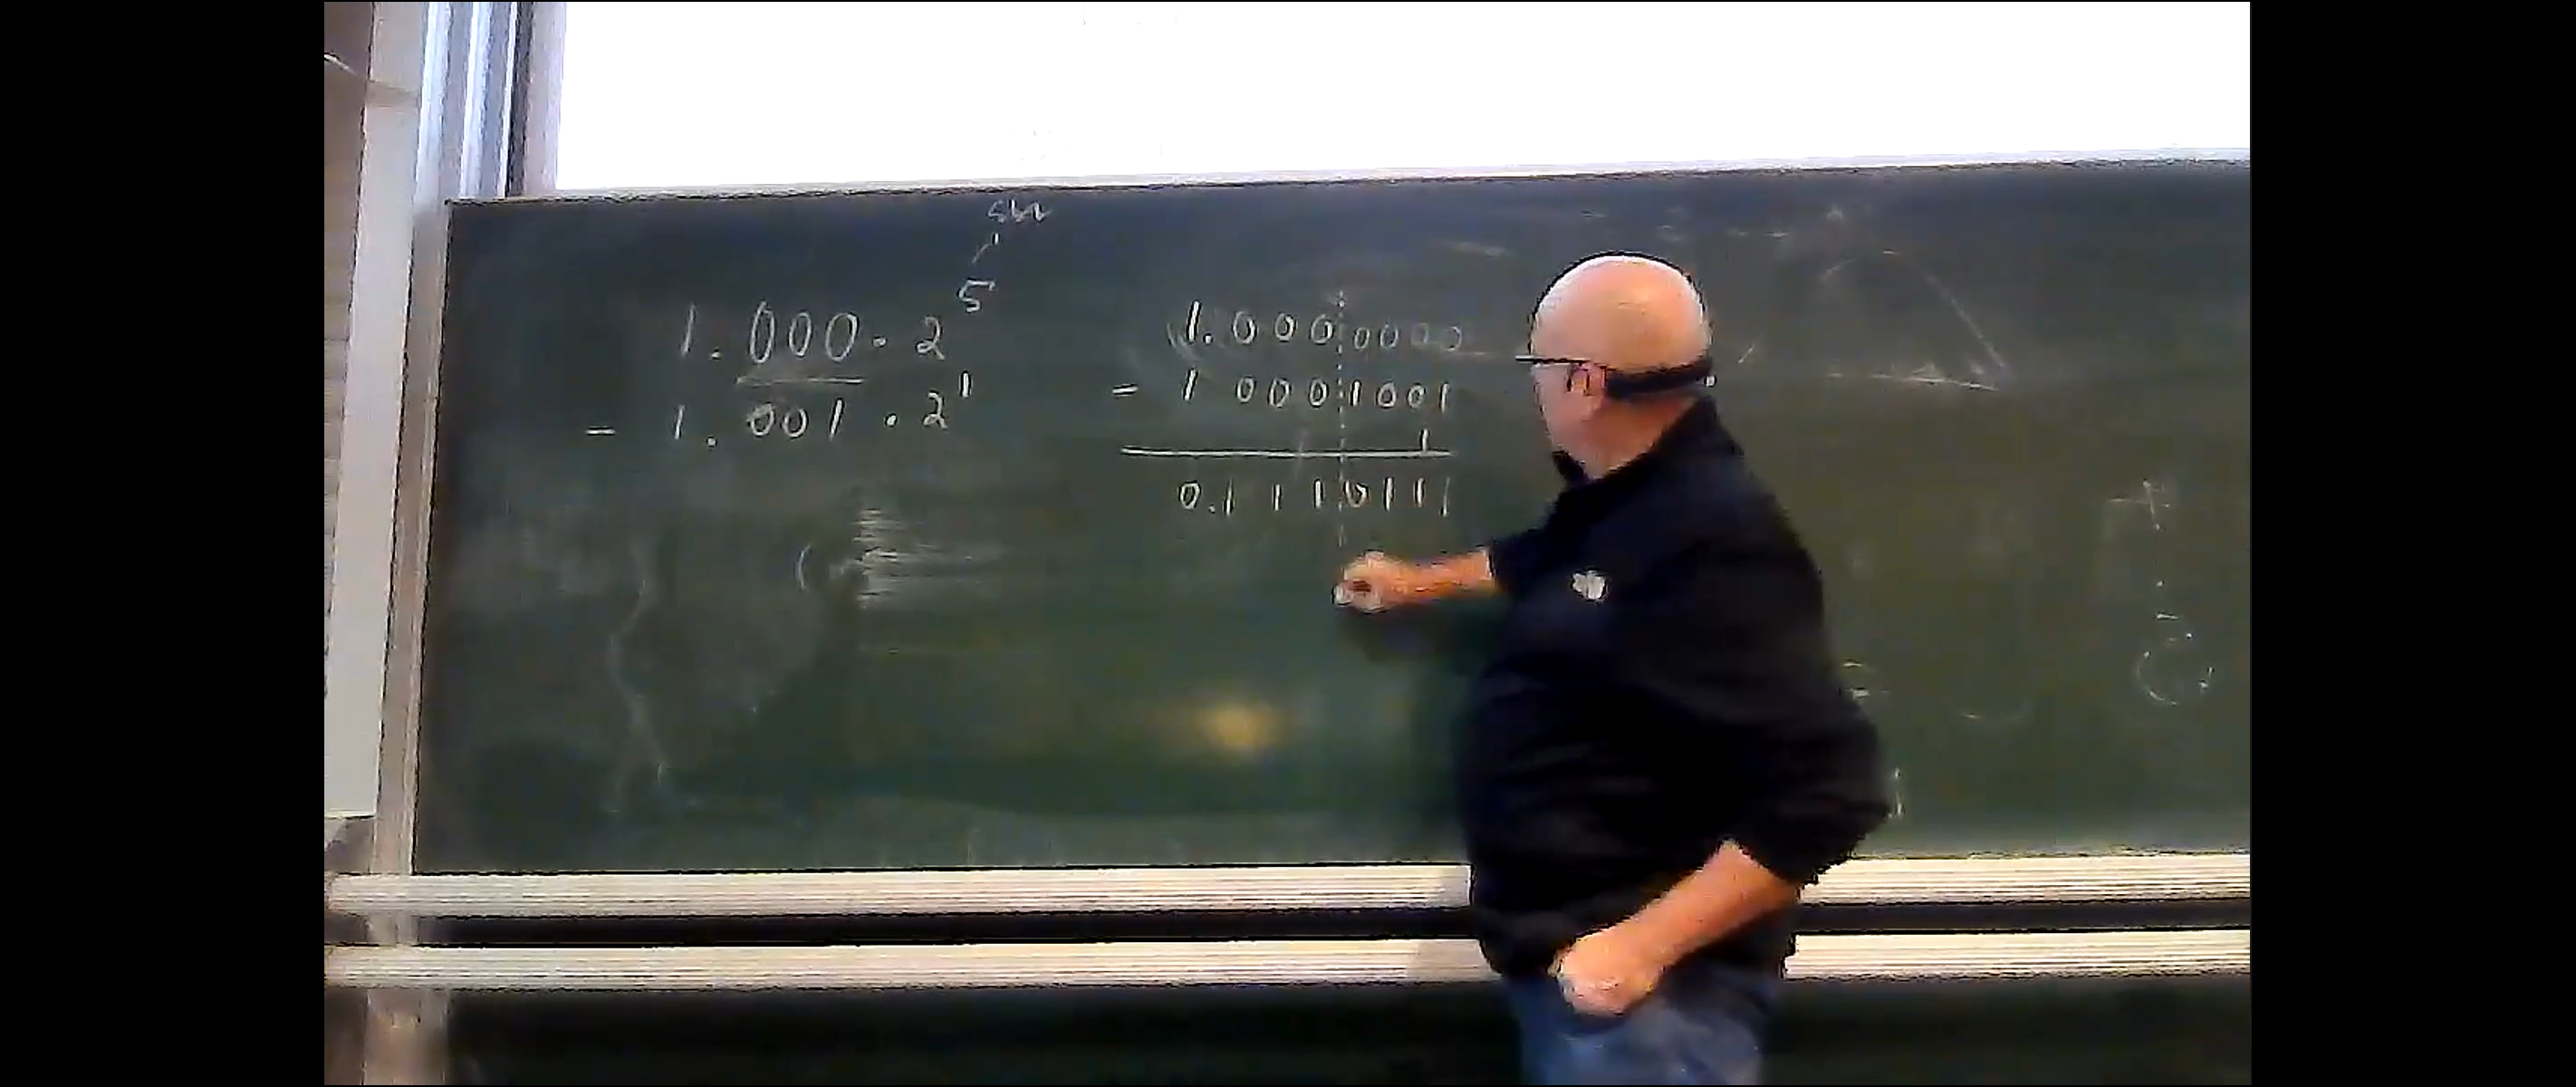 5
1.000 · 2
- 1.001 · 2¹
1.0000000
- 1 0001001
1
0.1110111